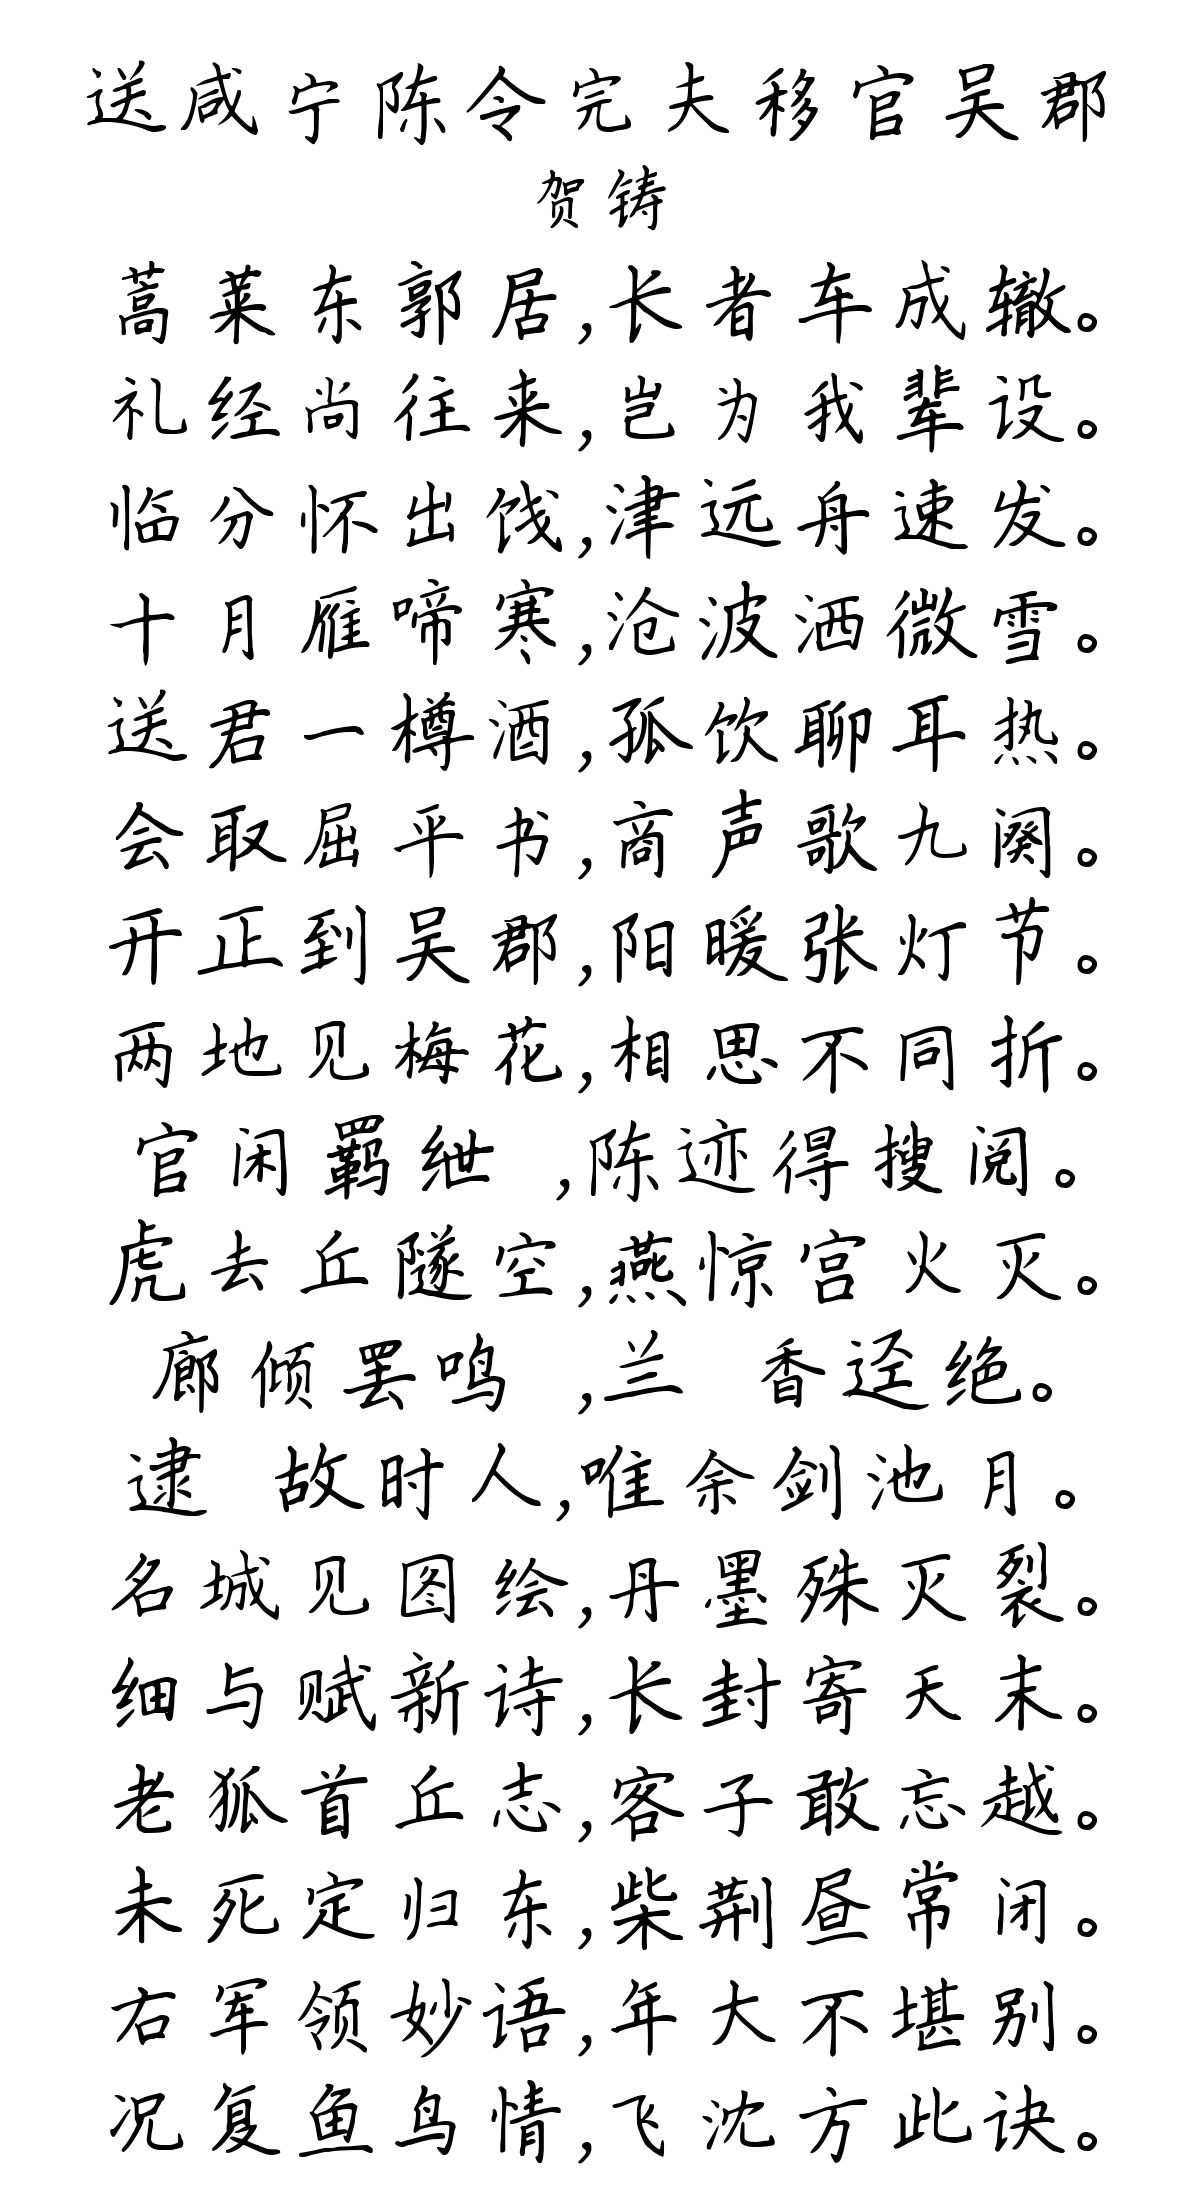 送咸宁陈令完夫移官吴郡
贺铸
蒿莱东郭居,长者车成辙。
礼经尚往来,岂为我辈设。
临分怀出饯,津远舟速发。
十月雁啼寒,沧波洒微雪。
送君一樽酒,孤饮聊耳热。
会取屈平书,商声歌九阕。
开正到吴郡,阳暖张灯节。
两地见梅花,相思不同折。
官闲羁绁 ,陈迹得搜阅。
虎去丘隧空,燕惊宫火灭。
廊倾罢鸣 ,兰 香迳绝。
逮 故时人,唯余剑池月。
名城见图绘,丹墨殊灭裂。
细与赋新诗,长封寄天末。
老狐首丘志,客子敢忘越。
未死定归东,柴荆昼常闭。
右军领妙语,年大不堪别。
况复鱼鸟情,飞沈方此诀。